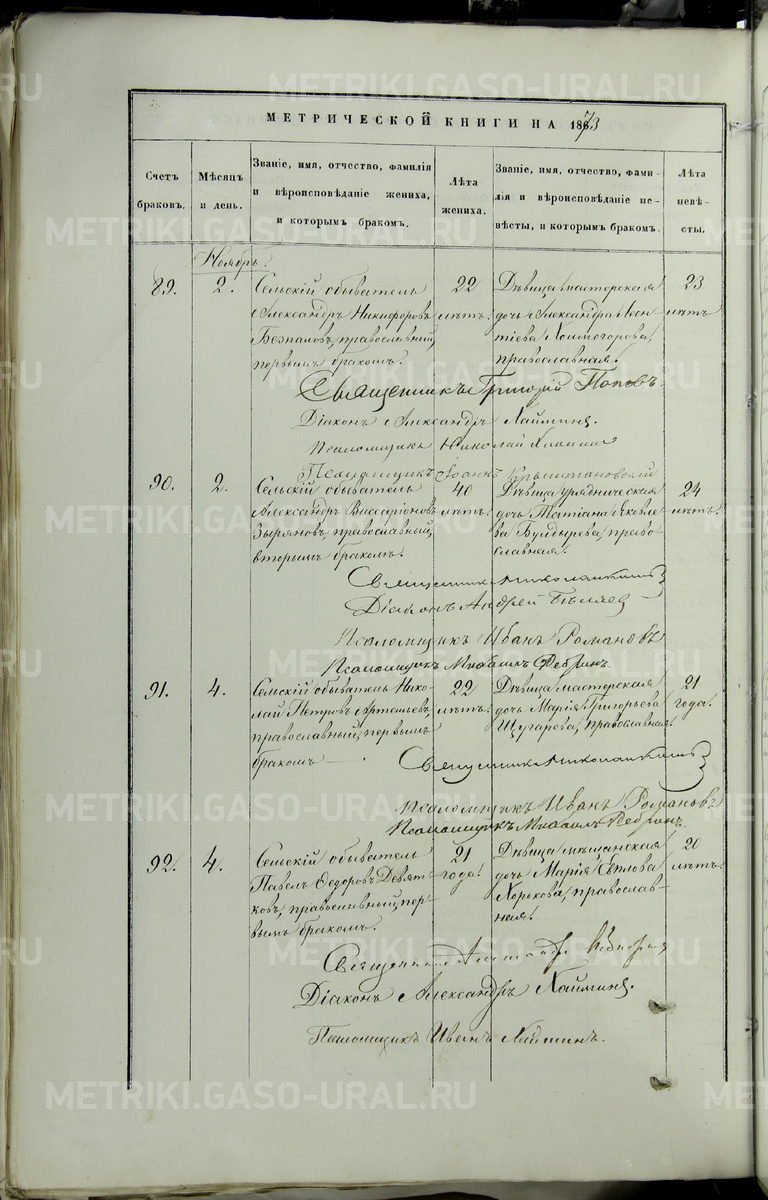 МЕТРИЧЕСКОЙ КНИГИ НА 1873
Счетъ браковъ.
Мѣсяцъ и день.
Званіе, имя, отчество, фамилія и вѣроисповѣданіе жениха, и которымъ бракомъ.
Лѣта жениха.
Званіе, имя, отчество, фамилія и вѣроисповѣданіе невѣсты, и которымъ бракомъ.
Лѣта невѣсты.
Ноябрь.
89. 2. Сельскій обыватель 22 Дѣвица мастерская 23
Александръ Никифоровъ лѣтъ. дочь Александра Леон- лѣтъ
Безпаловъ, православный, тіева Холмогорова,
первымъ бракомъ. православная.
Священникъ Григорій Поповъ.
Діаконъ Александръ Лайминъ.
Псаломщикъ Николай
Псаломщикъ Іоаннъ
90. 2. Сельскій обыватель 40 Дѣвица урядническая 24
Александръ Виссаріоновъ лѣтъ. дочь Татіана Яковле- лѣтъ.
Зыряновъ, православный, ва Булдырева, право-
вторымъ бракомъ. славная.
Священникъ
Діаконъ Андрей Бѣляев
Псаломщикъ Иванъ Романовъ
Псаломщикъ Михаилъ Ребринъ.
91. 4. Сельскій обыватель Нико- 22 Дѣвица мастерская 21
лай Петровъ Артемьевъ, лѣтъ. дочь Марія Григорьева года.
православный, первымъ Щугарева, православная.
бракомъ
Священникъ
Псаломщикъ Иванъ Романовъ
Псаломщикъ Михаилъ Ребринъ.
92. 4. Сельскій обыватель 21 Дѣвица мѣщанская 20
Павелъ Ѳедоровъ Девят- года. дочь Марія Евплова лѣтъ.
ковъ, православный, пер- Хорькова, православ-
вымъ бракомъ. ная.
Священникъ
Діаконъ Александръ Лайминъ.
Псаломщикъ Иванъ Лайминъ.
METRIKI.GASO-URAL.RU